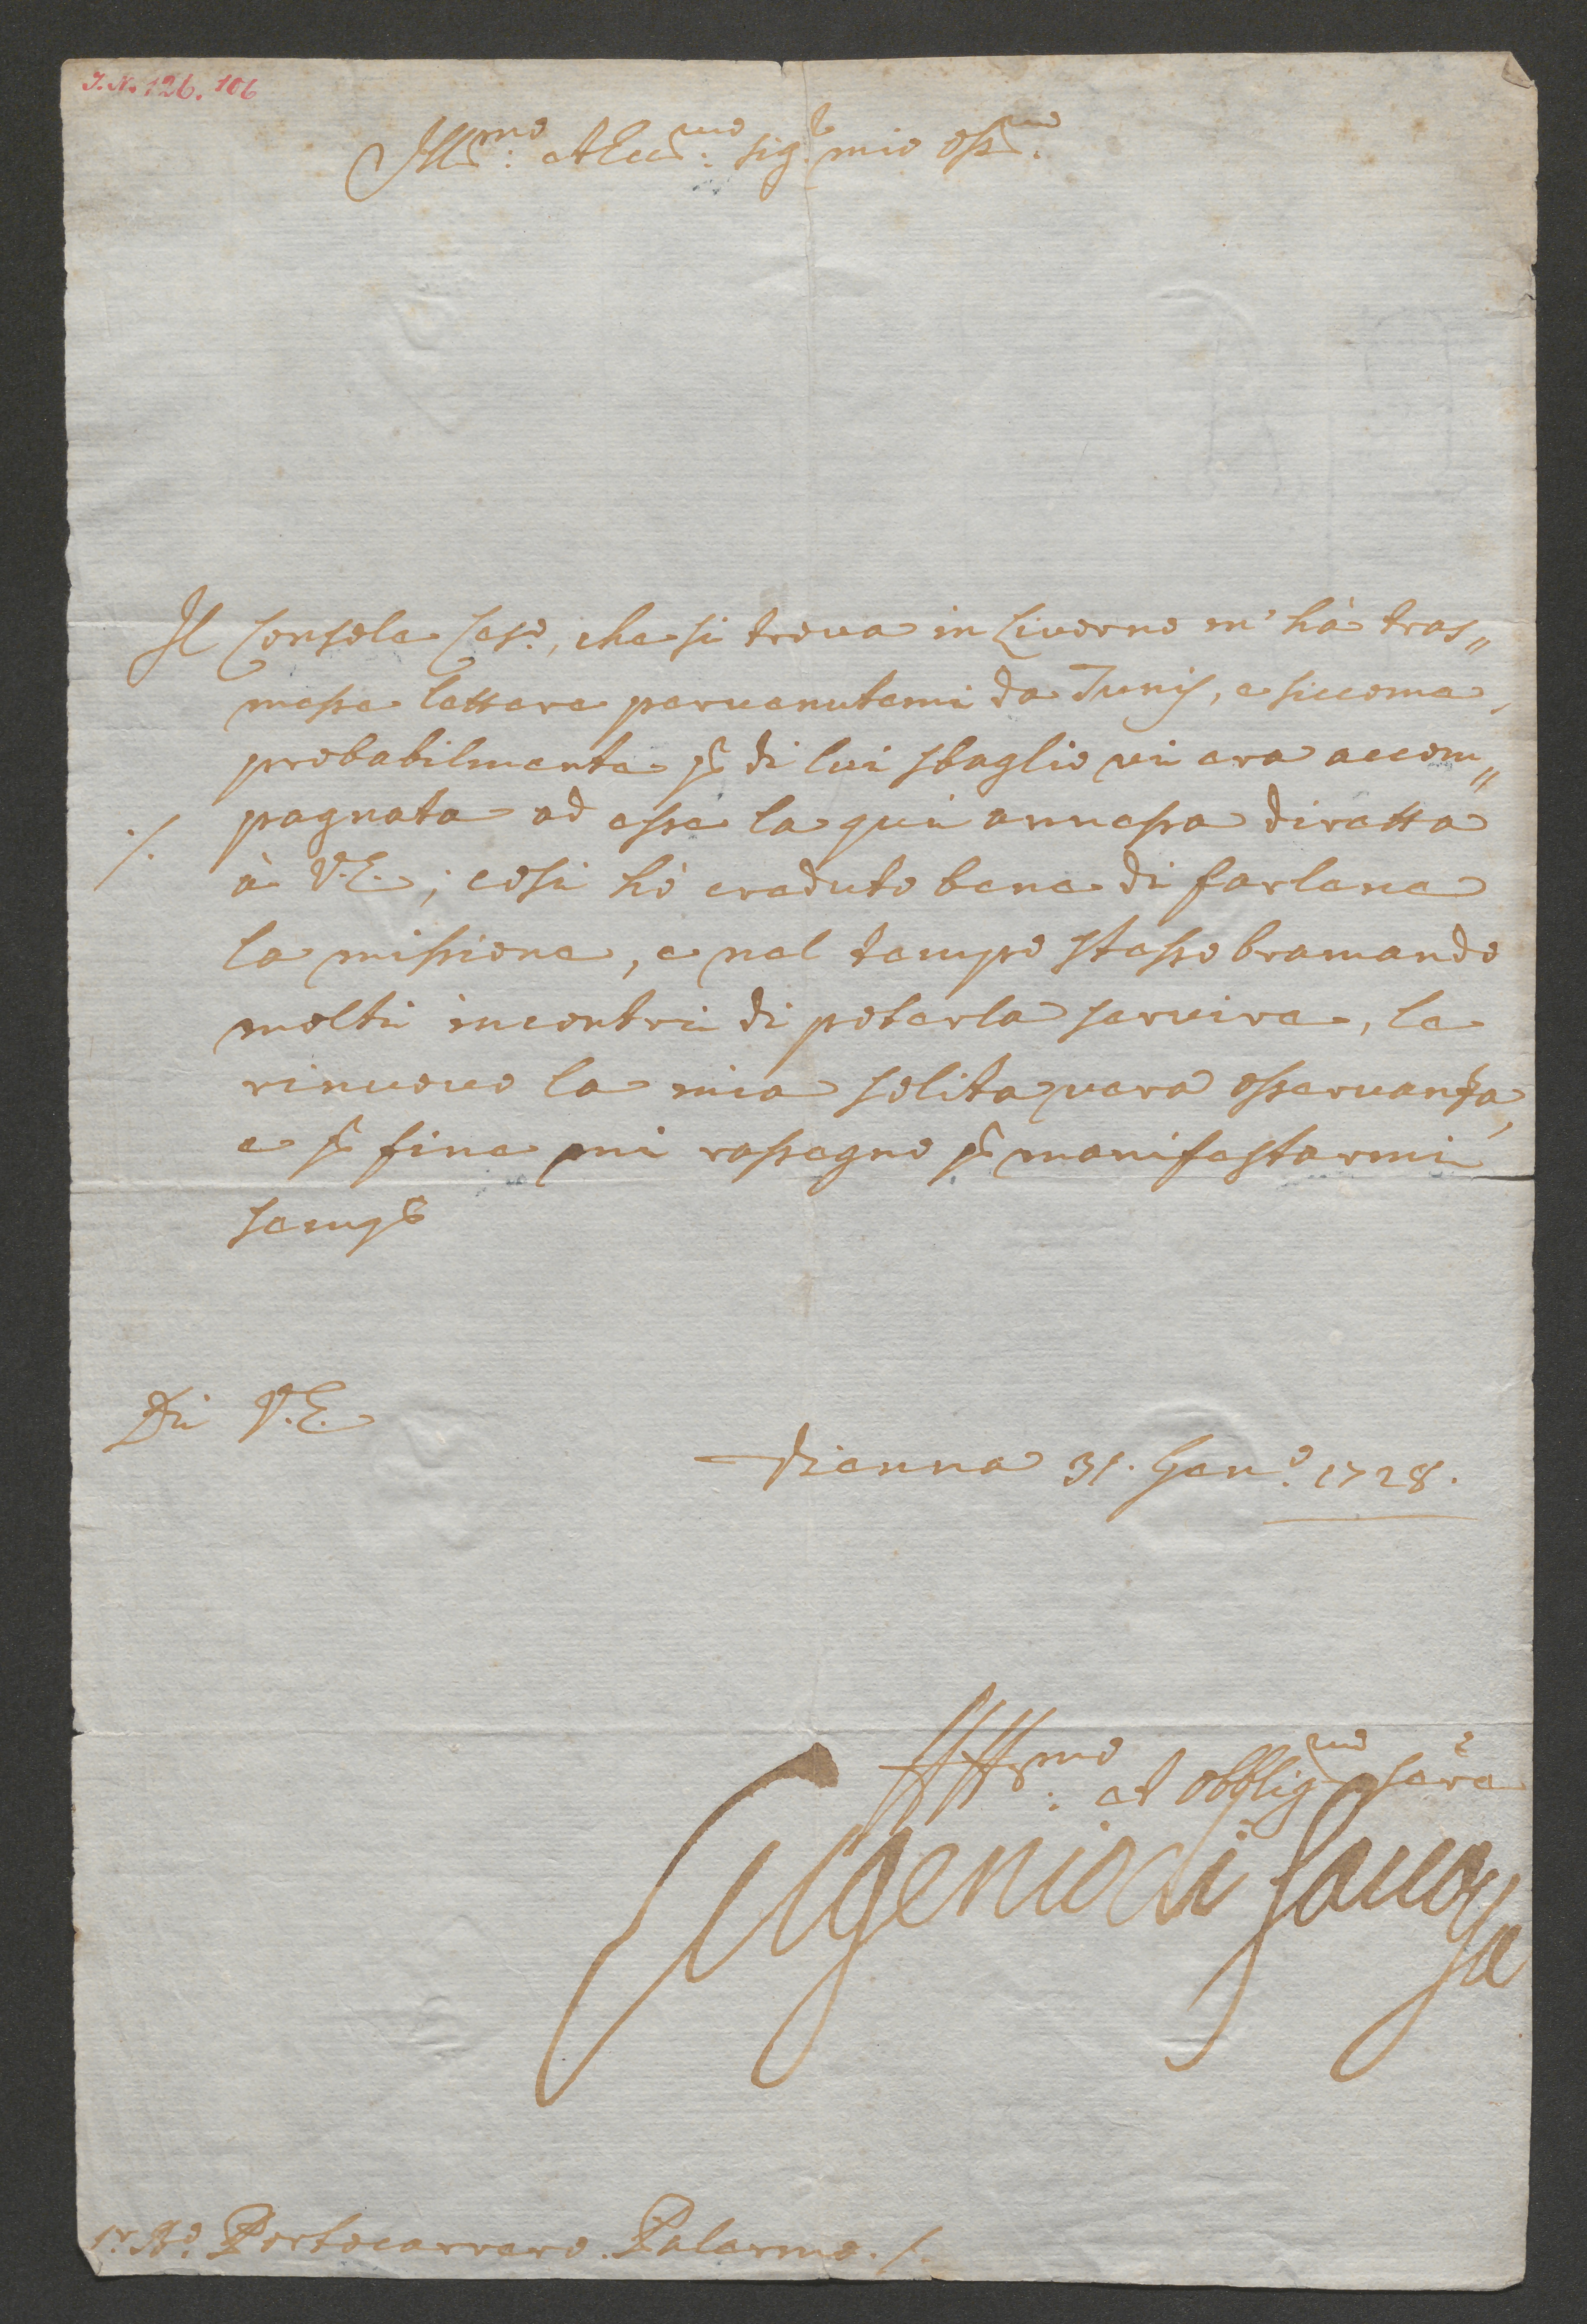 I.N. 126.106
Ill.mo et Ecc.mo sig.r mio oss.mo
Il Console Ces.o, che si trova in Livorno m'hà tras„
messe lettere pervenutemi da Tunis, e siccome
probabilmente p di lui sbaglio vi era accom„
pagnata ad esse la qui annessa diretta
à V.E.; cosi hò creduto bene di farlene
la missione, e nel tempo stesso bramando
molti incontri di poterla servire, le
rinuovo la mia solita vera osservanza,
e p fine mi rassegno p manifestarmi
semp
Di V.E.
Vienna 31. Gen.o 1728.
Aff.mo et obblig.mo ser.e
Eugenio di Savoya
Portocarrero. Palermo. /.